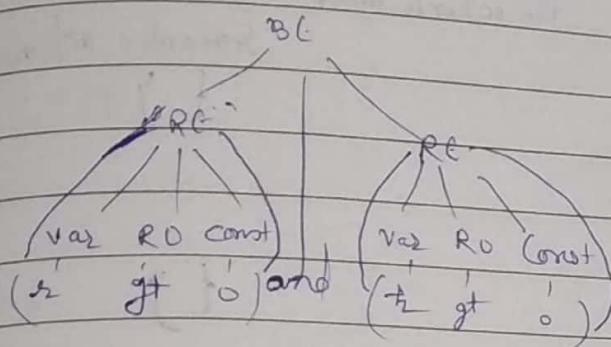 BE
RE RE
Var RO Const Var RO Const
(r gt 0) and (t gt 0)